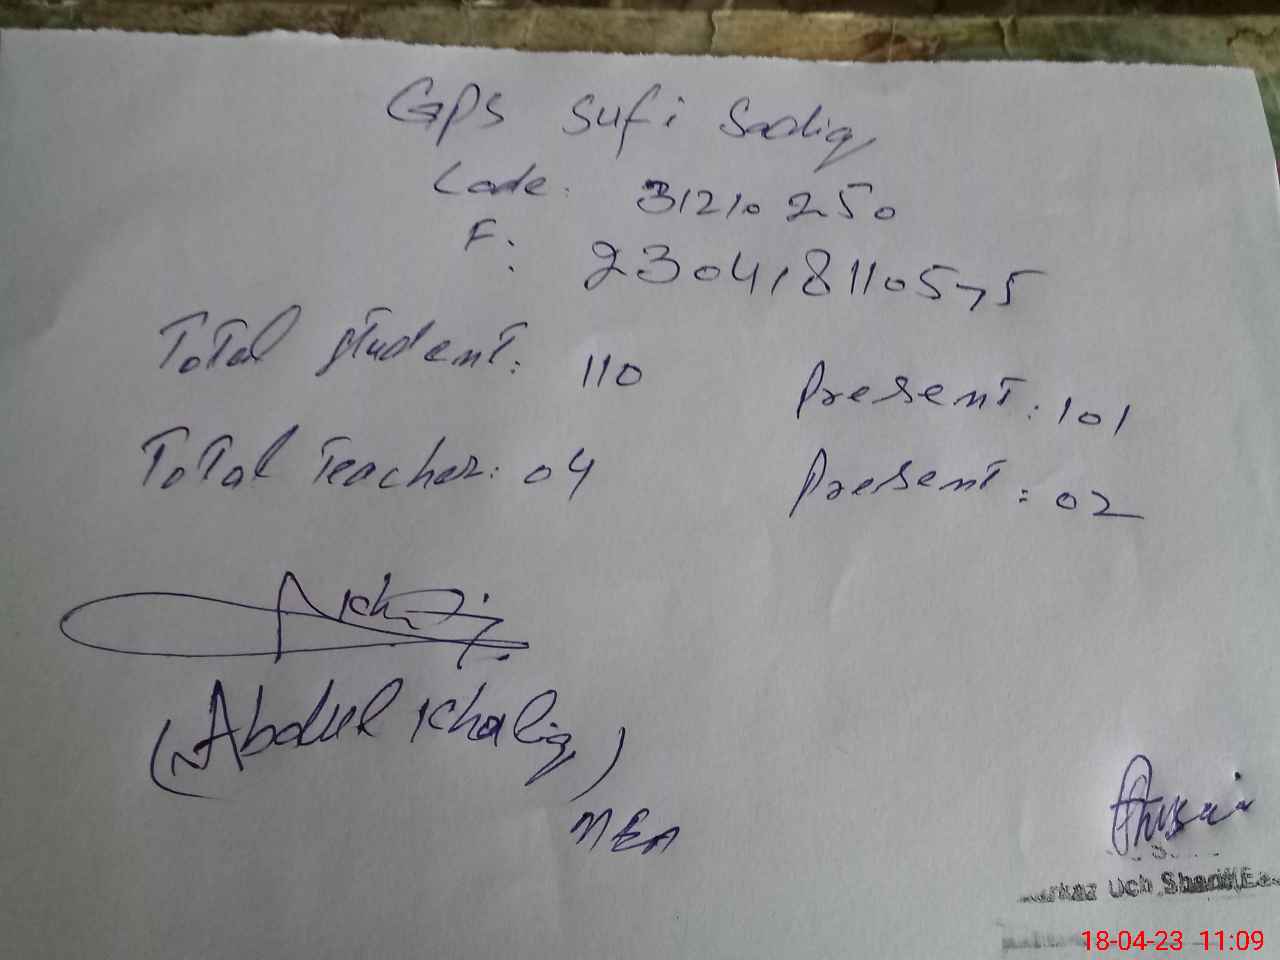 GPS Sufi Sadiq
Code: 31210250
F: 230418110575
Total student: 110 Present: 101
Total Teacher: 04 Present: 02
(Abdul Khaliq)
MEA
Markaz Uch Sharif
18-04-23 11:09